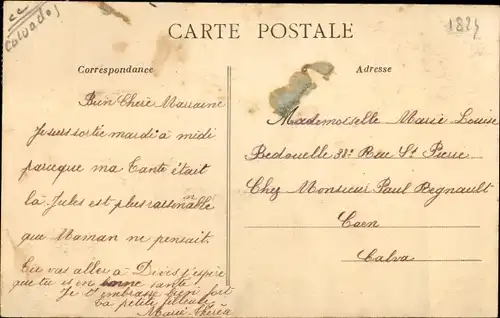 Calvados
1824
CARTE POSTALE
Correspondance
Adresse
Bien Chère Marraine
Je suis sortie mardi à midi
parceque ma Tante était
là Jules est plus raisonnable
que Maman ne pensait.
Tu vas aller à Dives j'espère
que tu es en bonne santé
Je t'embrasse bien fort
Ta petite filleule
Marie Thérèse
Mademoiselle Marie Louise
Bedouelle 38 Rue St Pierre
Chez Monsieur Paul Regnault
Caen
Calva